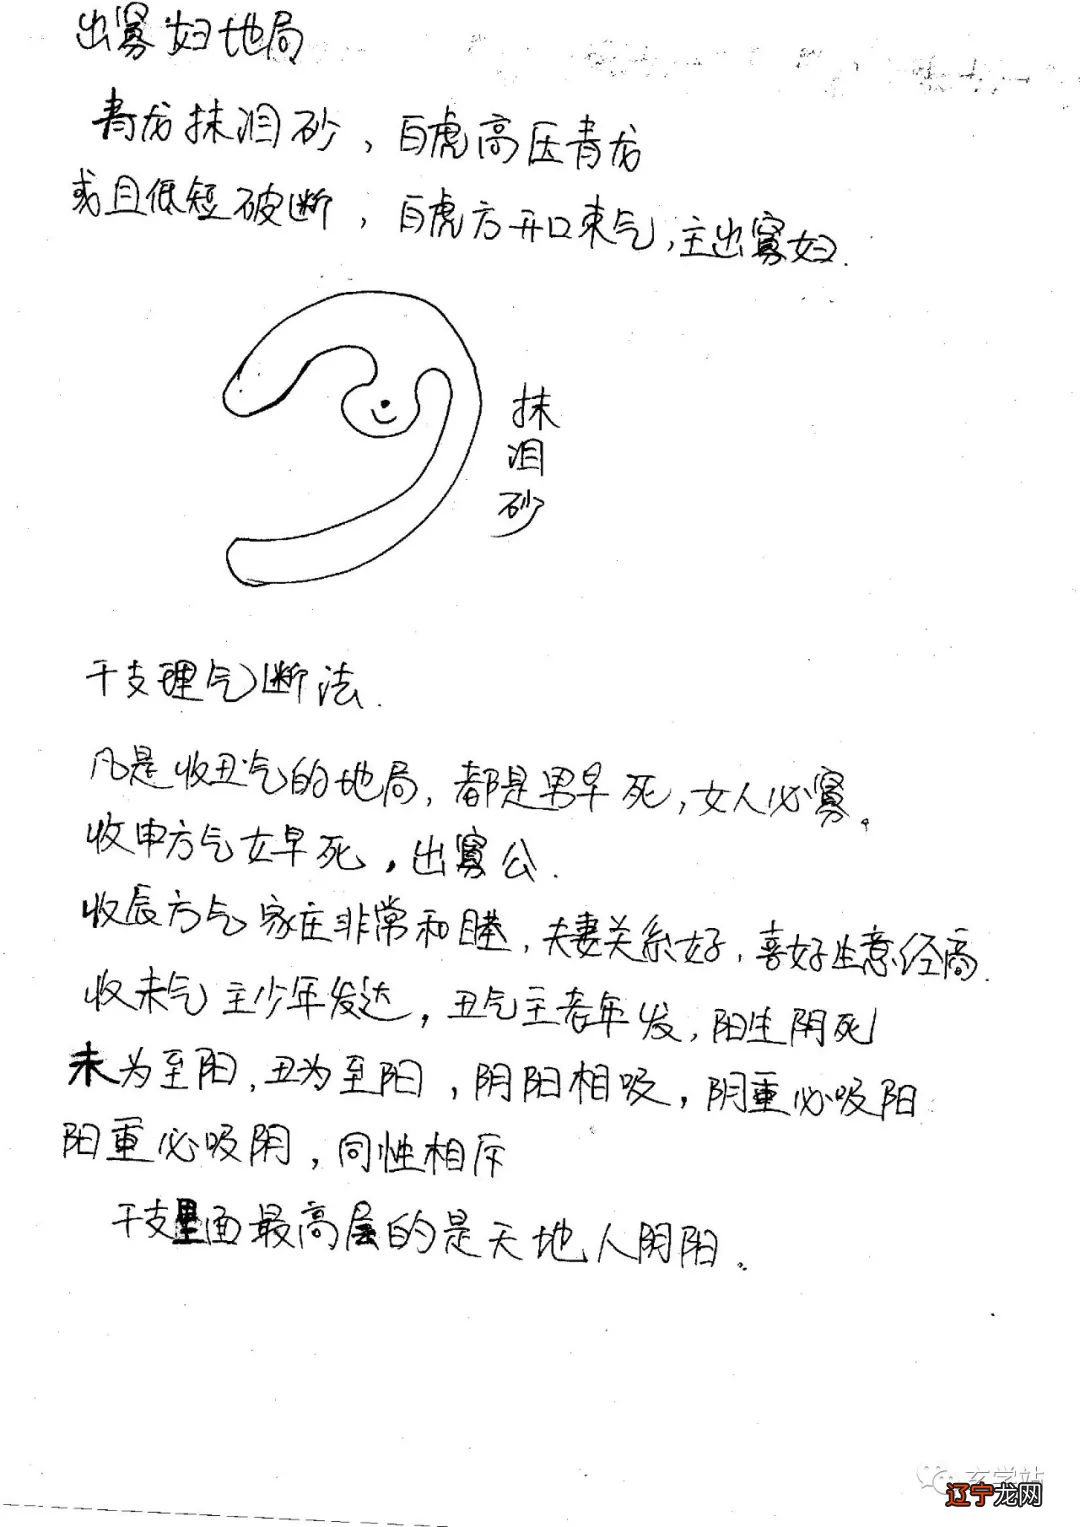 出寡妇地局
青龙抹泪砂，白虎高压青龙
或且低短破断，白虎方开口来气，主出寡妇.
抹
泪
砂
干支理气断法.
凡是收丑气的地局，都是男早死，女人必寡。
收申方气女早死，出寡公.
收辰方气家庄非常和睦，夫妻关系好，喜好生意经商.
收未气主少年发达，丑气主老年发，阳生阴死
未为至阳，丑为至阳，阴阳相吸，阴重必吸阳
阳重必吸阴，同性相斥
干支里面最高层的是天地人阴阳。
玄学站
辽宁龙网